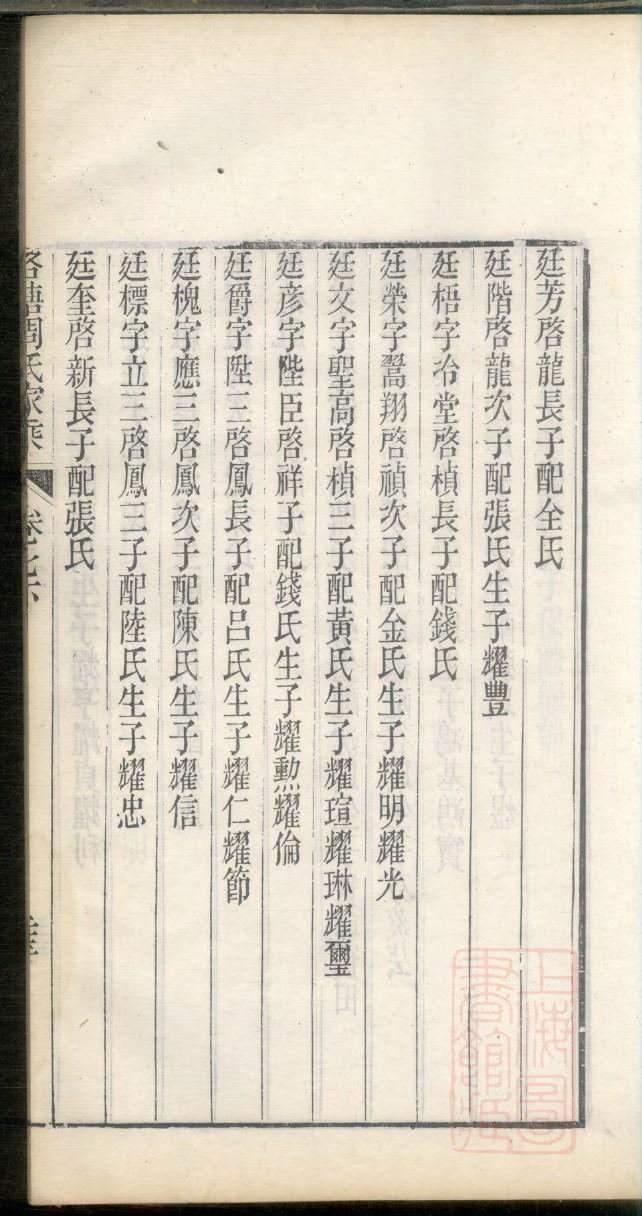 廷芳啓龍長子配全氏
廷階啓龍次子配張氏生子耀豐
廷梧字冾堂啓楨長子配錢氏
廷榮字翯翔啓禎次子配金氏生子耀明耀光
廷文字聖高啓楨三子配黃氏生子耀瑄耀琳耀璽
廷彦字陛臣啓祥子配錢氏生子耀勲耀倫
廷爵字陞三啓鳳長子配呂氏生子耀仁耀節
廷槐字應三啓鳳次子配陳氏生子耀信
廷標字立三啓鳳三子配陸氏生子耀忠
廷奎啓新長子配張氏
塘周氏家乘
卷之六
上海圖書館藏